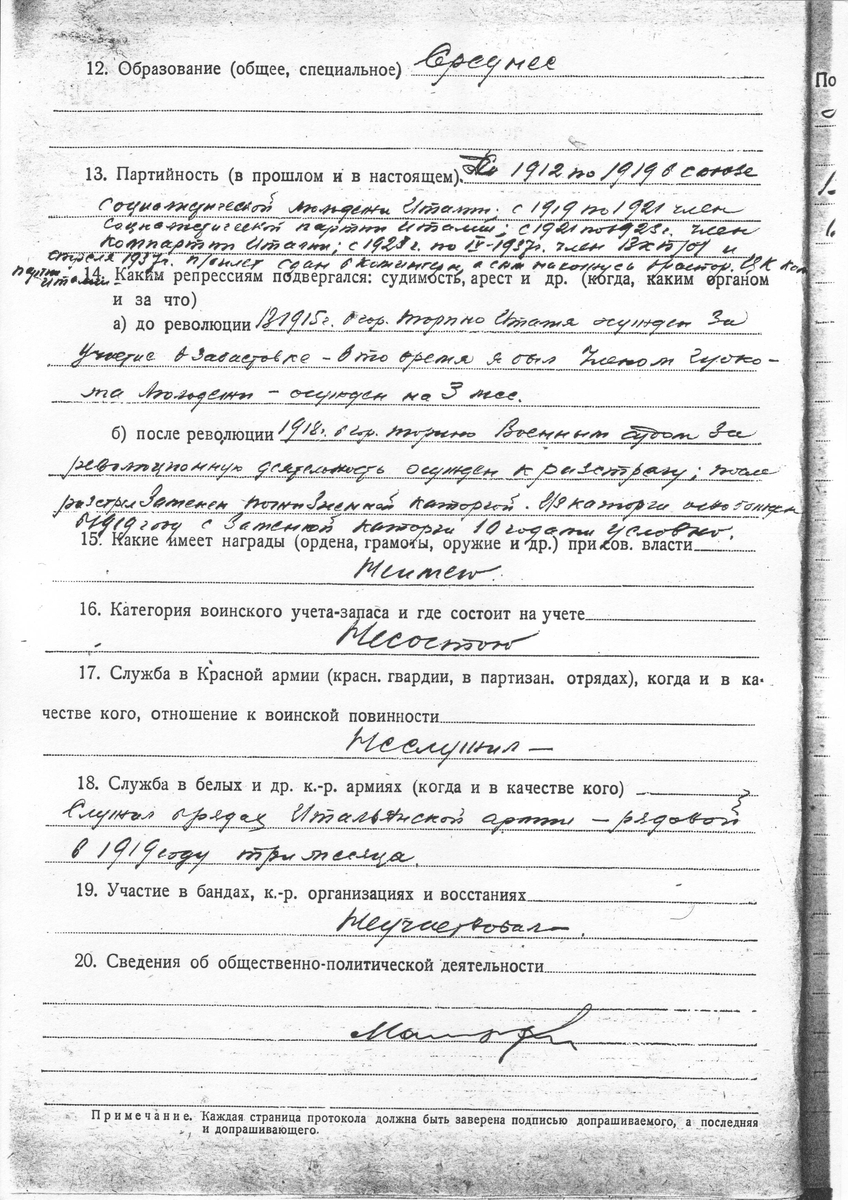 12. Образование (общее, специальное) Среднее
13. Партийность (в прошлом и в настоящем). 1912 по 1919 в союзе
социалистической молодежи Италии; с 1919 по 1921 член
социалистической партии Италии; с 1921 по 1923г. член
Компартии Италии; с 1923г. по IV-1937г. член ВКП/б/ и
апреля 1937г. п/билет сдан в Коминтерн, а сам нахожусь в ЦК Ком
партии Италии
14. Каким репрессиям подвергался: судимость, арест и др. (когда, каким органом
и за что)
а) до революции В 1915г. в гор. Торино Италия осужден за
участие в забастовке – в то время я был членом Губко-
ма молодежи – осужден на 3 мес.
б) после революции 1918г. в гор. Торино Военным судом за
революционную деятельность осужден к расстрелу; после
расстрел заменен пожизненной каторгой. Из каторги освобожден
в 1919 году с заменой каторги 10 годами условно.
15. Какие имеет награды (ордена, грамоты, оружие и др.) при сов. власти
Не имею
16. Категория воинского учета-запаса и где состоит на учете
Не состою
17. Служба в Красной армии (красн. гвардии, в партизан. отрядах), когда и в ка-
честве кого, отношение к воинской повинности
Не служил –
18. Служба в белых и др. к.-р. армиях (когда и в качестве кого)
Служил в рядах Итальянской армии – рядовой
в 1919 году три месяца.
19. Участие в бандах, к.-р. организациях и восстаниях
Не участвовал.
20. Сведения об общественно-политической деятельности
Примечание. Каждая страница протокола должна быть заверена подписью допрашиваемого, а последняя
и допрашивающего.
По